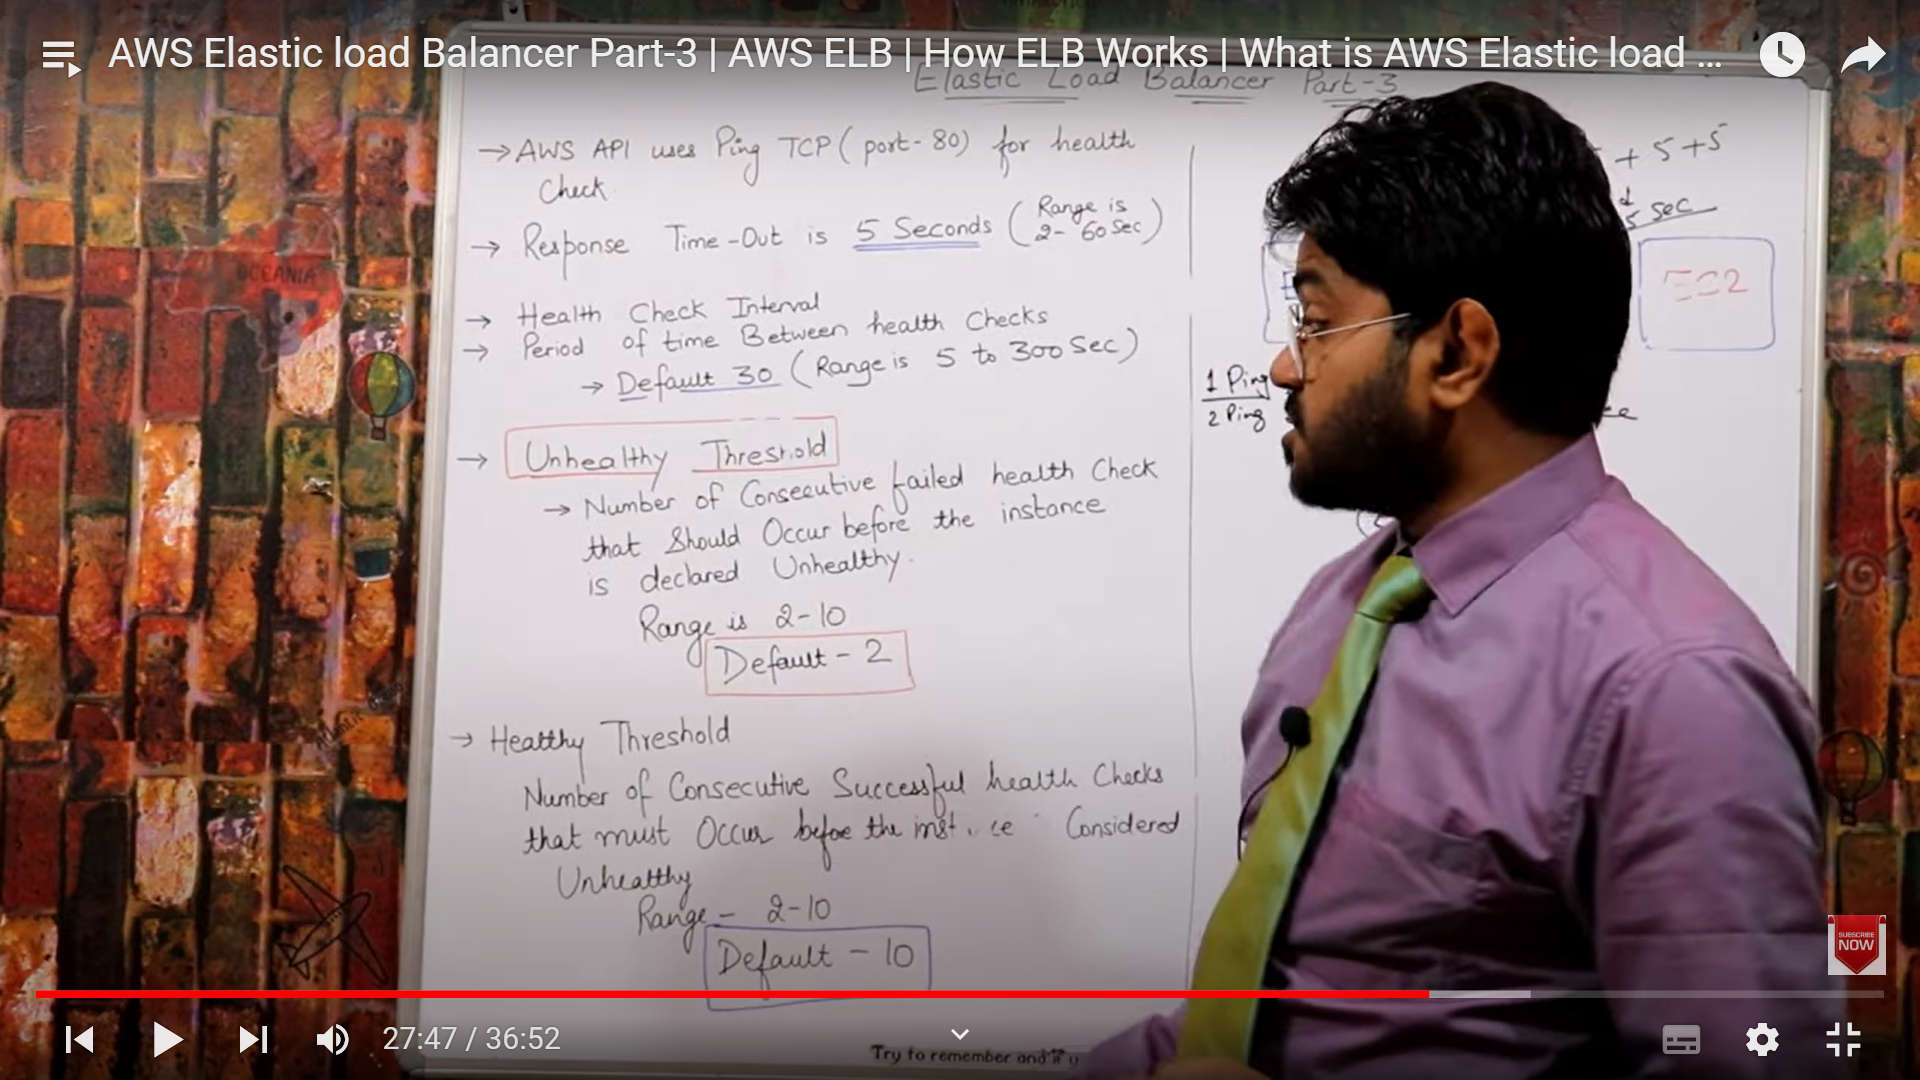 AWS Elastic load Balancer Part-3 | AWS ELB | How ELB Works | What is AWS Elastic load ...
Elastic Load Balancer Part-3
→ AWS API uses Ping TCP ( port-80) for health
Check
→ Response Time-Out is 5 Seconds ( Range is
2- 60 Sec )
→ Health Check Interval
→ Period of time Between health Checks
→ Default 30 ( Range is 5 to 300 Sec )
→ Unhealthy Threshold
→ Number of Consecutive failed health Check
that Should Occur before the instance
is declared Unhealthy.
Range is 2-10
Default - 2
→ Healthy Threshold
Number of Consecutive Successful health Checks
that must Occur before the Considered
Unhealthy
Range - 2-10
Default - 10
+ 5 +5
5 sec
EC2
1 Ping
2 Ping
OCEANIA
SUBSCRIBE
NOW
27:47 / 36:52
Try to remember and if u